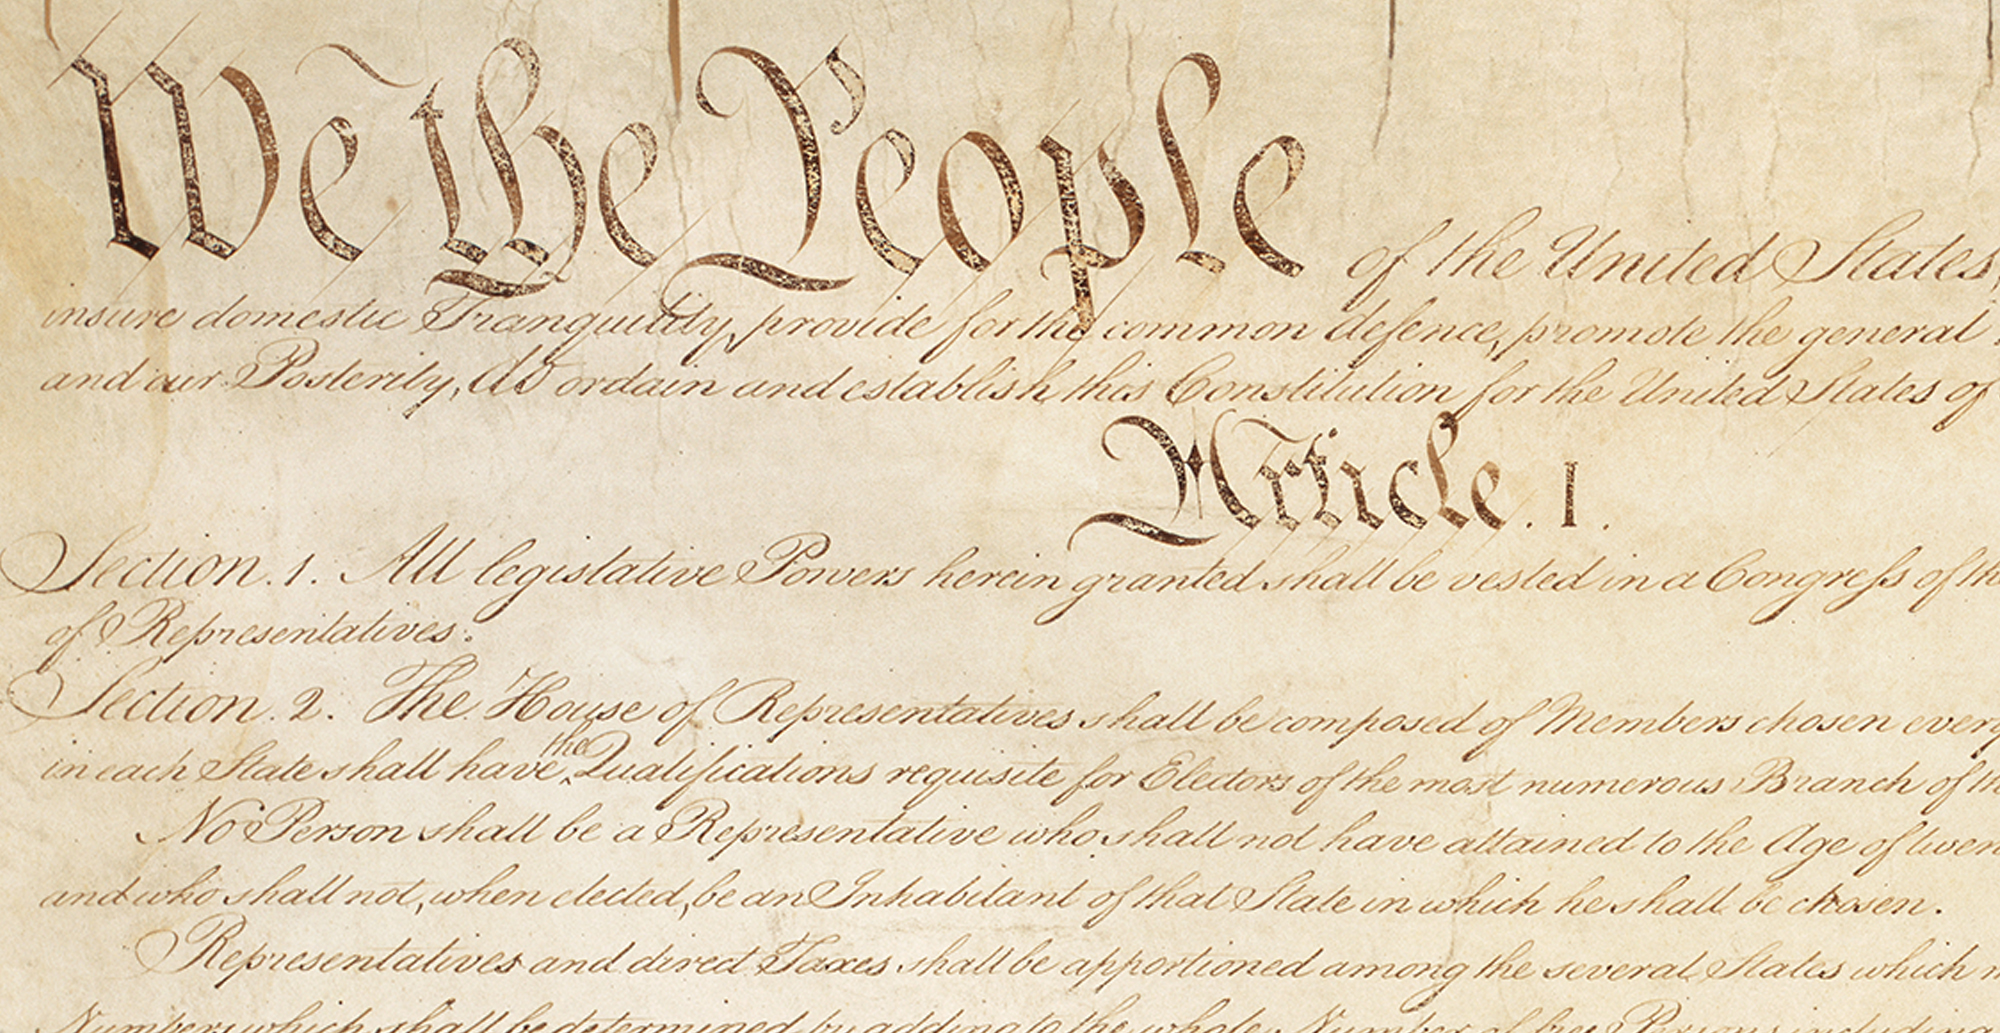 We the People of the United States,
insure domestic Tranquility, provide for the common defence, promote the general
and our Posterity, do ordain and establish this Constitution for the United States of
Article. I.
Section. 1. All legislative Powers herein granted shall be vested in a Congress of th
of Representatives.
Section. 2. The House of Representatives shall be composed of Members chosen every
the
in each State shall have Qualifications requisite for Electors of the most numerous Branch of th
No Person shall be a Representative who shall not have attained to the Age of twen
and who shall not, when elected, be an Inhabitant of that State in which he shall be chosen.
Representatives and direct Taxes shall be apportioned among the several States which m
Numbers, which shall be determined by adding to the whole Number of free Persons, including